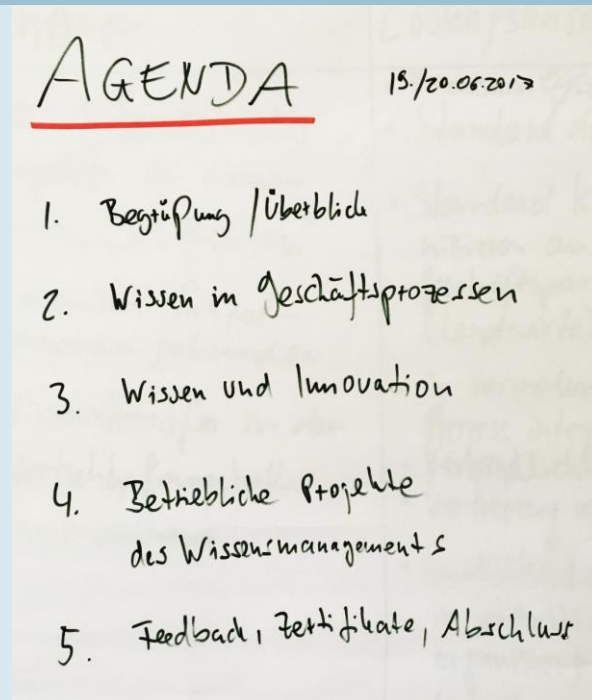 AGENDA 19./20.06.2017
1. Begrüßung / Überblick
2. Wissen in Geschäftsprozessen
3. Wissen und Innovation
4. Betriebliche Projekte
des Wissensmanagements
5. Feedback, Zertifikate, Abschluss